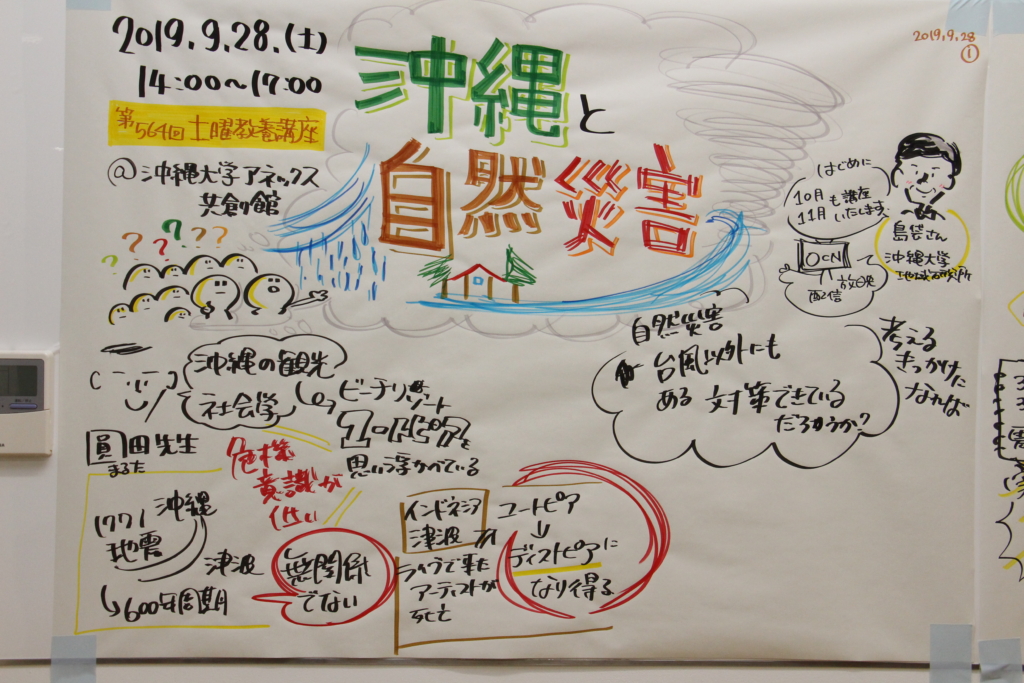 2019.9.28.(土)
14:00〜17:00
第564回 土曜教養講座
@沖縄大学アネックス
共創館
沖縄と
自然災害
2019.9.28
①
はじめに
10月も講座
11月いたします。
OCN
放映
配信
島袋さん
沖縄大学
地域研究所
? ? ? ? ? ?
自然災害
台風以外にも
ある 対策できている
だろうか?
考える
きっかけに
なれば
沖縄の観光
社会学
ビーチリゾート
ユートピアを
思い浮かべている
圓田先生
まるた
危機
意識が
低い
1771 沖縄
地震
津波
↳600年周期
無関係
でない
インドネシア
津波が
ライブで来た
アーティストが
死亡
ユートピア
↓
ディストピアに
なり得る